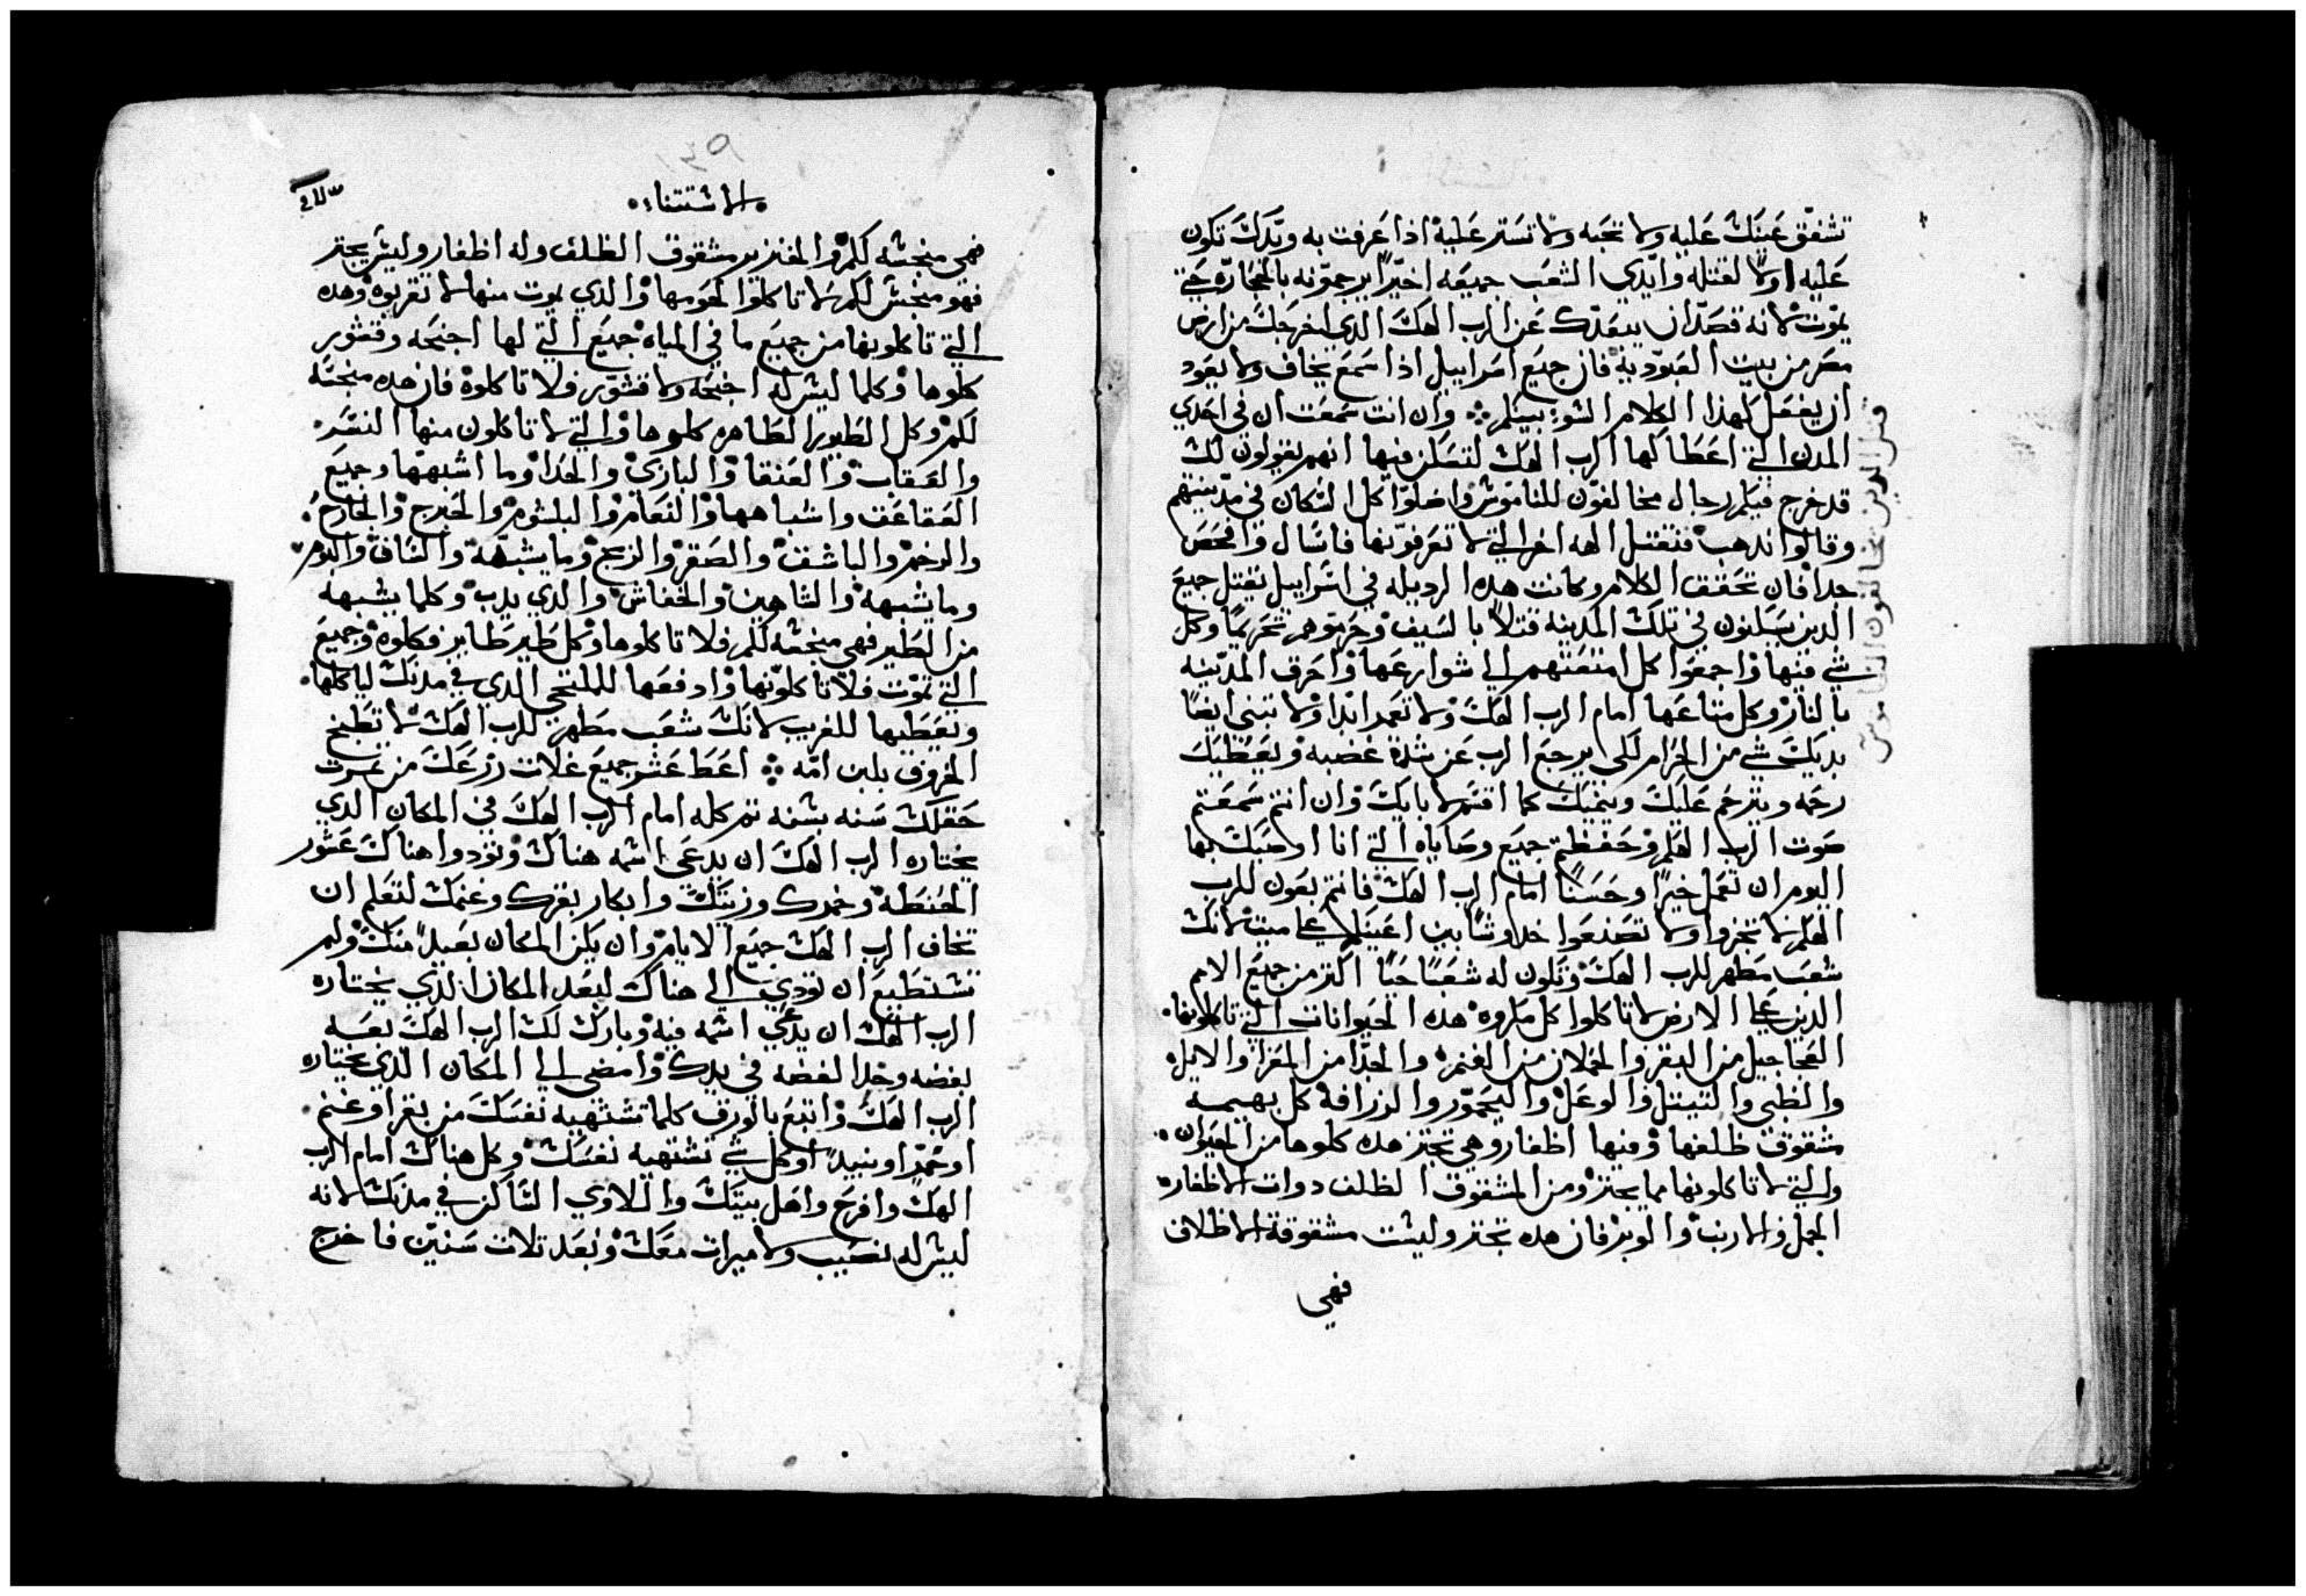 تشفق عينك عليه ولا تحبه ولا تستر عليه اذا عرفت به ويدك تكون
عليه اولاً لقتله وايدي الشعب جميعه اخيراً يرجمونه بالحجاره حتي
يموت لانه قصد ان يبعدك عن الرب الهك الدي اخرجك من ارض
مصر من بيت العبوديه فان جميع اسراييل ادا سمع يخاف ولا يعود
ان يفعل كهدا الكلام الشو بينكم وان انت سمعت ان في احدي
المدن التي اعطاكها الرب الهك لتسكن فيها انهم يقولون لك
قد خرج فيكم رجال مخالفون للناموش واضلوا كل الشكان في مدينتهم
وقالوا ندهب فنقتل الهه اخر التي لا تعرفونها فاسال وافحص
جدا فان تحقق الكلام وكانت هده الرديله في اسراييل تقتل جميع
الدين يسكنون في تلك المدينه قتلاً بالسيف وحرموهم تحريماً وكل
شي فيها واجمعوا كل امتعتهم الي شوارعها واحرق المدينه
بالنار وكل متاعها امام الرب الهك ولا تعمر ابدا ولا تبني ايضاً
بديك شي من الحرام لكي يرجع الرب عن شدة غضبه ويعطيك
رحمه ويترحم عليك وينميك كما اقسم لابايك وان انتم سمعتم
صوت الرب الهكم وحفظتم جميع وصاياه التي انا اوصيك بها
اليوم ان تعمل خيراً وحسناً امام الرب الهك فانتم بنون للرب
الهكم لا تجزوا ولا تصنعوا بين اعينكم علي ميت لانك
شعب مطهر للرب الهك وتكون له شعباً حياً اكتر من جميع الامم
الدين علي الارض لا تاكلوا كل مكروه هده الحيوانات التي تاكلونها
العجاجيل من البقر والحملان من الغنم والجدا من المعز والايله
والظبي والتيتل والوعل واليحمور والزرافة كل بهيمه
مشقوق ظلفها وفيها اظفار وهي تجتر هده كلوها من الحيوان
والتي لا تاكلونها مما يجتر ومن المشقوق الظلف دوات الاظفاره
الجمل والارنب والوبر فان هده تجتر وليشت مشقوقة الاظلاف
فهي
قتل الدين يخالفون الناموس
١٣٩
الاشتتناء
فهي منجشه لكم والخنزير مشقوق الظلف وله اظفار وليش يجتر
فهو منجش لكم لا تاكلوا لحومها والدي يموت منها لا تقربوه وهده
التي تاكلونها من جميع ما في المياه جميع التي لها اجنحه وقشور
كلوها وكلما ليش له اجنحه ولا قشور فلا تاكلوه فان هده منجشه
لكم وكل الطيور الطاهره كلوها والتي لا تاكلون منها النسر
والعقاب والعنقا والبازي والحدا وما اشبهها وجميع
العقاعق واشباهها والنعام والبلشوم والخبرج
والرخم والباشق والصقر والزمج وما يشبهه والبوم
وما يشبهه والشاهين والخفاش والدي يدب وكلما يشبهه
من الطير فهي منجشه لكم فلا تاكلوها وكل طير طاير فكلوه وجميع
التي تموت فلا تاكلونها وادفعها للملتجي الدي في مدنك لياكلها
وتعطيها للغريب لانك شعب مطهر للرب الهك لا تطبخ
الخروف بلبن امه اعط عشر جميع غلات زرعك من
حقلك سنه بشنه تم كله امام الرب الهك في المكان الدي
يختاره الرب الهك ان يدعي اشمه هناك وتودوا هناك عشور
الحنطة وخمرك وزيتك وابكار بقرك وغنمك لتعلم ان
تخاف الرب الهك جميع الايام وان يكن المكان بعيداً منك ولم
تشتطيع ان تودي الي هناك لبعد المكان الدي يختاره
الرب الهك ان يدعي اشمه فيه وبارك لك الرب الهك بعه
بفضه وخد الفضه في يدك وامضي الي المكان الدي يختاره
الرب الهك وابتع بالورق كلما تشتهيه نفسك من بقر اوغنم
اوخمرا او نبيداً اوكل شي تشتهيه نفسك وكل هناك امام الرب
الهك وافرح واهل بيتك واللاوي الشاكن في مدنك لانه
ليش له نصيب ولا ميرات معك وبعد تلات سنين فاخرج